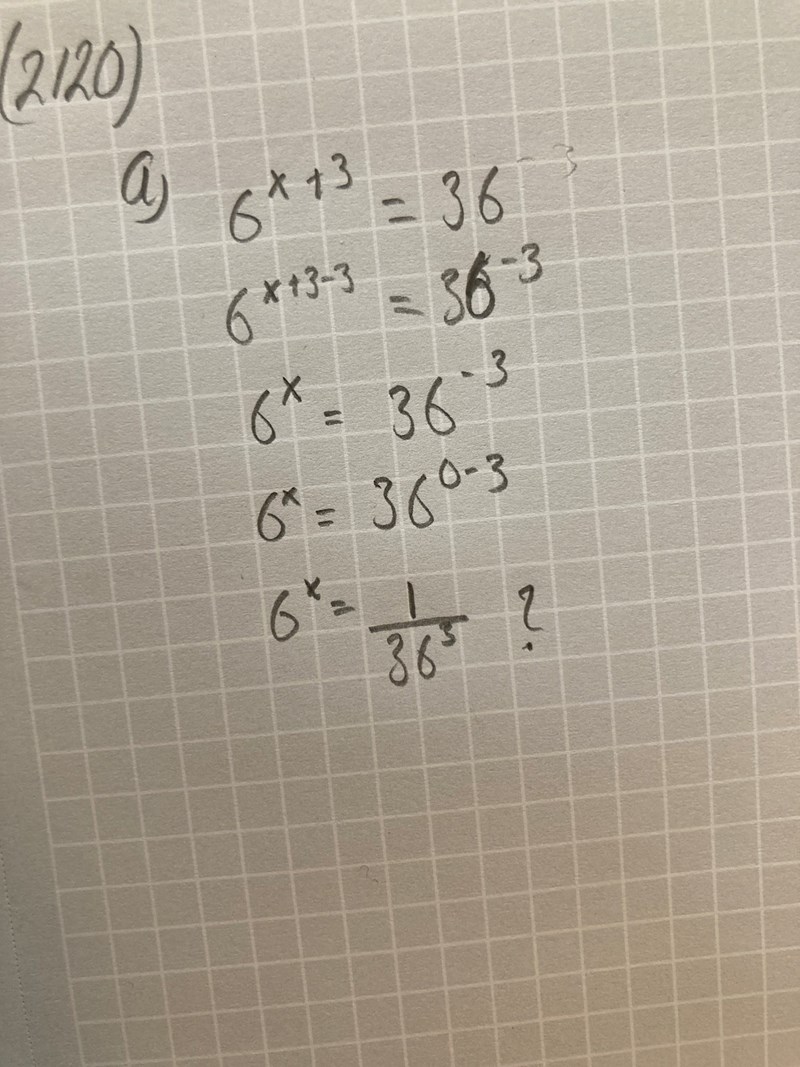 (2120)
a) 6^{x+3} = 36
6^{x+3-3} = 36^{-3}
6^x = 36^{-3}
6^x = 36^{0-3}
6^x = \frac{1}{36^3} ?